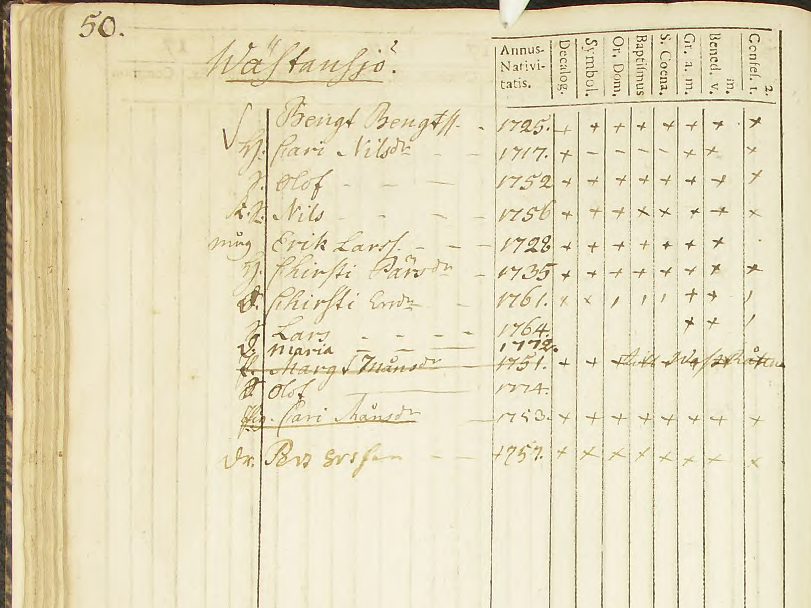 50.
Wästansjö.
Annus Nativi- tatis. Decalog. Symbol. Or. Dom. Baptismus S. Coena. Gr. a. m. Bened. v. m. Confes. 1. 2.
Bengt Bengtss. - 1725. + + + + + + + +
H. Cari Nilsdr - - 1717. + - - - - + + ×
S. Olof - - - 1752 + + + + + + + +
Nils - - - - 1756 + + + × × + + ×
måg Erik Larss. - - - 1728 + + + + + + +
H. Chirsti Pärsdr - 1735 + + + + + + + +
D. Chirsti Ersdr - 1761.
Lars - - - - 1764.
D. Maria - - - 1772.
Marg. Månsdr 1751. + +
S. Olof 1774.
Cari Månsdr 1753. + + + + + + + +
dr. Pers Ersson - - 1757. + × × × × × + ×